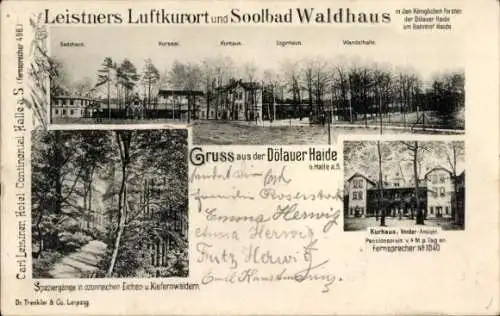 Leistners Luftkurort und Soolbad Waldhaus
in den Königlichen Forsten
der Dölauer Haide
am Bahnhof Haide
Badehaus. Kursaal. Kurhaus. Jägerhaus. Wandelhalle.
Carl Leistner, Hotel Continental, Halle a. S. (Fernsprecher 496.)
Gruss aus der Dölauer Haide
b. Halle a. S.
Emma Herwig
Herwig
Fritz Herwig
Emil
Kurhaus, Vorder-Ansicht.
Pensionspreis v. 4 M p. Tag an
Fernsprecher No 1040
Spaziergänge in ozonreichen Eichen- u. Kiefernwäldern.
Dr. Trenkler & Co. Leipzig.